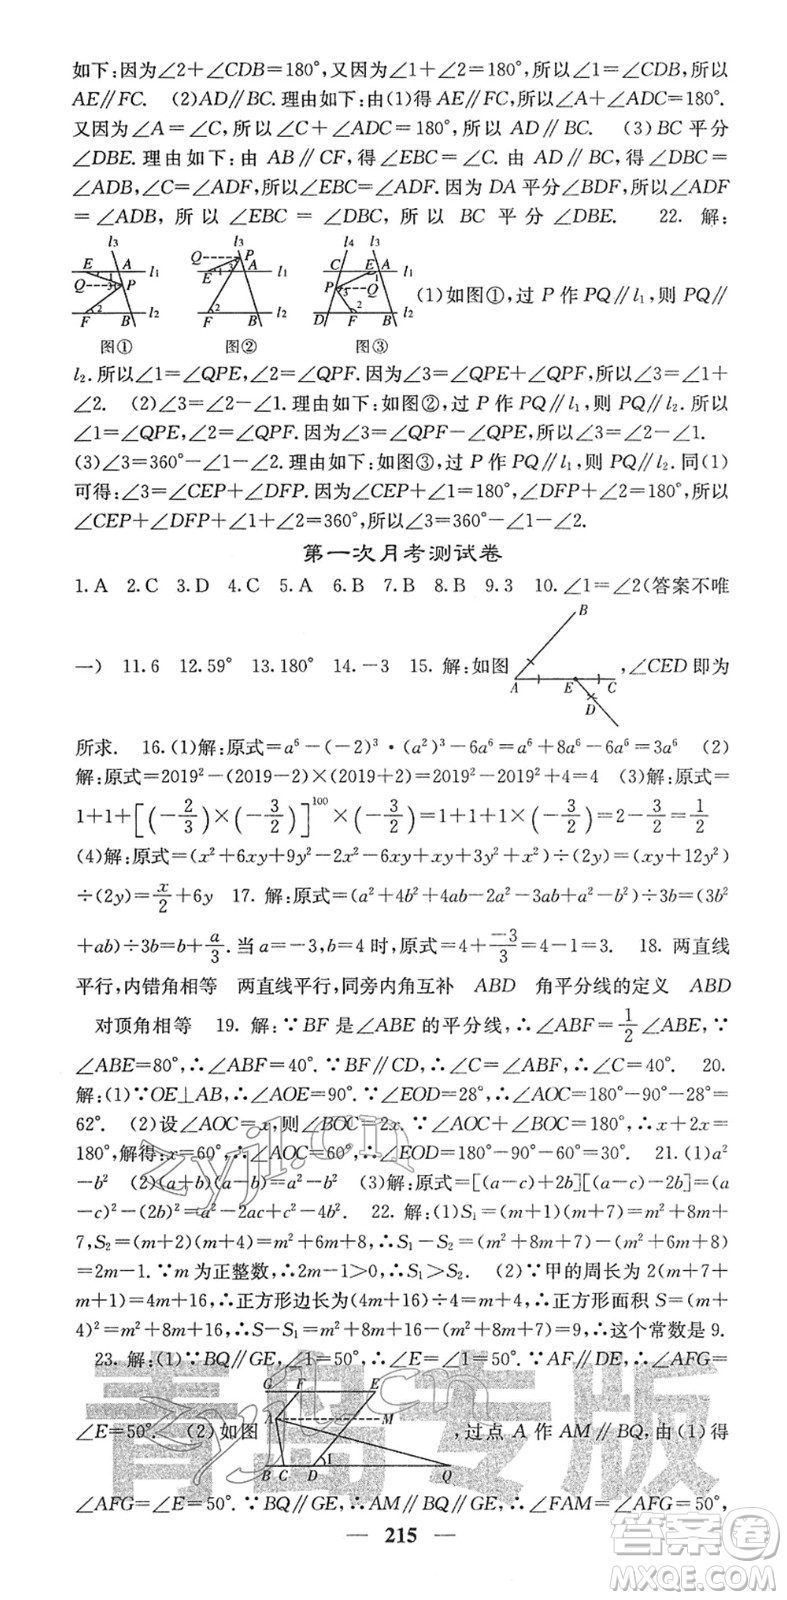 如下:因为∠2+∠CDB=180°,又因为∠1+∠2=180°,所以∠1=∠CDB,所以
AE∥FC. (2)AD∥BC.理由如下:由(1)得AE∥FC,所以∠A+∠ADC=180°.
又因为∠A=∠C,所以∠C+∠ADC=180°,所以 AD∥BC. (3)BC平分
∠DBE.理由如下:由 AB∥CF,得∠EBC=∠C. 由 AD∥BC,得∠DBC=
∠ADB,∠C=∠ADF,所以∠EBC=∠ADF.因为 DA平分∠BDF,所以∠ADF
=∠ADB,所以∠EBC=∠DBC,所以 BC 平分∠DBE. 22. 解:
l3 E A l1 1 Q 3 P 2 F B l2 图①
l3 Q P E 1 3 A l1 2 F B l2 图②
l4 l3 C E A l1 P 3 Q D F B l2 图③
(1)如图①,过 P 作 PQ∥l1,则 PQ∥
l2.所以∠1=∠QPE,∠2=∠QPF.因为∠3=∠QPE+∠QPF,所以∠3=∠1+
∠2. (2)∠3=∠2-∠1.理由如下:如图②,过 P 作 PQ∥l1,则 PQ∥l2.所以
∠1=∠QPE,∠2=∠QPF.因为∠3=∠QPF-∠QPE,所以∠3=∠2-∠1.
(3)∠3=360°-∠1-∠2.理由如下:如图③,过 P 作 PQ∥l1,则 PQ∥l2.同(1)
可得:∠3=∠CEP+∠DFP.因为∠CEP+∠1=180°,∠DFP+∠2=180°,所以
∠CEP+∠DFP+∠1+∠2=360°,所以∠3=360°-∠1-∠2.
第一次月考测试卷
1.A 2.C 3.D 4.C 5.A 6.B 7.B 8.B 9.3 10.∠1=∠2(答案不唯
一) 11.6 12.59° 13.180° 14.-3 15.解:如图 A B C D E ,∠CED即为
所求. 16.(1)解:原式=a⁶-(-2)³·(a²)³-6a⁶=a⁶+8a⁶-6a⁶=3a⁶ (2)
解:原式=2019²-(2019-2)×(2019+2)=2019²-2019²+4=4 (3)解:原式=
1+1+[(-2/3)×(-3/2)]¹⁰⁰×(-3/2)=1+1+1×(-3/2)=2-3/2=1/2
(4)解:原式=(x²+6xy+9y²-2x²-6xy+2xy+x²+3y²)÷(2y)=(xy+12y²)
÷(2y)=x/2+6y 17. 解:原式=(a²+4b²+4ab-2a²-3ab+a²-b²)÷3b=(3b²
+ab)÷3b=b+a/3.当 a=-3,b=4 时,原式=4+-3/3=4-1=3. 18. 两直线
平行,内错角相等 两直线平行,同旁内角互补 ABD 角平分线的定义 ABD
对顶角相等 19. 解:∵BF 是∠ABE 的平分线,∴∠ABF=1/2∠ABE,∵
∠ABE=80°,∴∠ABF=40°.∵BF∥CD,∴∠C=∠ABF,∴∠C=40°. 20.
解:(1)∵OE⊥AB,∴∠AOE=90°.∵∠EOD=28°,∴∠AOC=180°-90°-28°=
62° (2)设∠AOC=x,则∠BOC=2x.∵∠AOC+∠BOC=180°,∴x+2x=
180°,解得:x=60°,∴∠AOC=60°,∴∠EOD=180°-90°-60°=30°. 21.(1)a²
-b² (2)(a+b)(a-b)=a²-b² (3)解:原式=[(a-c)+2b][(a-c)-2b]=(a
-c)²-(2b)²=a²-2ac+c²-4b². 22.解:(1)S1=(m+1)(m+7)=m²+8m+
7,S2=(m+2)(m+4)=m²+6m+8,∴S1-S2=(m²+8m+7)-(m²+6m+8)=
2m-1.∵m 为正整数,∴S1>S2. (2)∵甲的周长为 2(m+7+
m+1)=4m+16,∴正方形边长为(4m+16)÷4=m+4,∴正方形面积 S=(m+
4)²=m²+8m+16,∴S-S1=m²+8m+16-(m²+8m+7)=9,∴这个常数是 9.
23.解:(1)∵BQ∥GE,∠1=50°,∴∠E=∠1=50°.∵AF∥DE,∴∠AFG=
∠E=50°. (2)如图 G F E A M B C D 1 Q ,过点 A 作 AM∥BQ,由(1)得
∠AFG=∠E=50°.∵BQ∥GE,∴AM∥BQ∥GE,∴∠FAM=∠AFG=50°,
— 215 —
青岛专版
zyjl.cn
答案圈
MXQE.COM